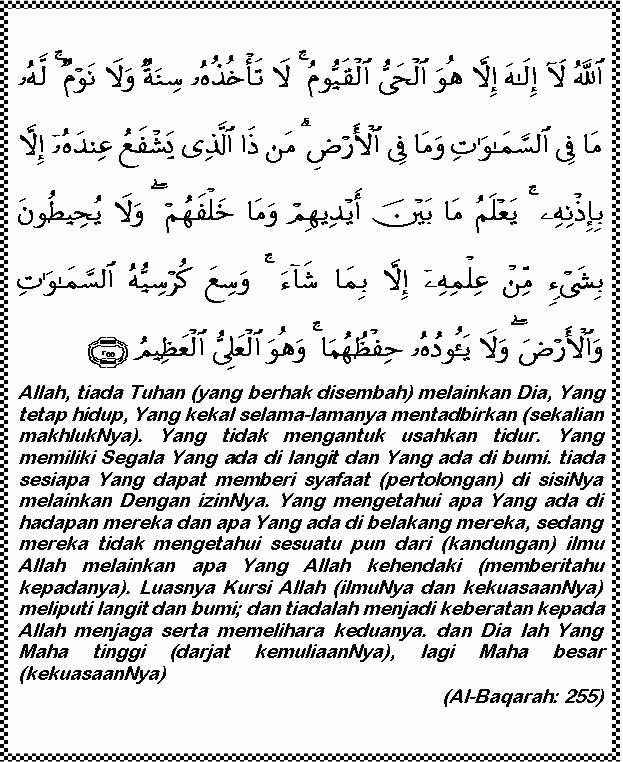 ٱللَّهُ لَآ إِلَـٰهَ إِلَّا هُوَ ٱلۡحَىُّ ٱلۡقَيُّومُ ۚ لَا تَأۡخُذُهُۥ سِنَةٌ۬ وَلَا نَوۡمٌ۬ ۚ لَّهُۥ
مَا فِى ٱلسَّمَـٰوَٲتِ وَمَا فِى ٱلۡأَرۡضِ ۗ مَن ذَا ٱلَّذِى يَشۡفَعُ عِندَهُۥۤ إِلَّا
بِإِذۡنِهِۦ ۚ يَعۡلَمُ مَا بَيۡنَ أَيۡدِيهِمۡ وَمَا خَلۡفَهُمۡ ۖ وَلَا يُحِيطُونَ
بِشَىۡءٍ۬ مِّنۡ عِلۡمِهِۦۤ إِلَّا بِمَا شَآءَ ۚ وَسِعَ كُرۡسِيُّهُ ٱلسَّمَـٰوَٲتِ
وَٱلۡأَرۡضَ ۖ وَلَا يَـُٔودُهُۥ حِفۡظُهُمَا ۚ وَهُوَ ٱلۡعَلِىُّ ٱلۡعَظِيمُ ٢٥٥
Allah, tiada Tuhan (yang berhak disembah) melainkan Dia, Yang
tetap hidup, Yang kekal selama-lamanya mentadbirkan (sekalian
makhlukNya). Yang tidak mengantuk usahkan tidur. Yang
memiliki Segala Yang ada di langit dan Yang ada di bumi. tiada
sesiapa Yang dapat memberi syafaat (pertolongan) di sisiNya
melainkan Dengan izinNya. Yang mengetahui apa Yang ada di
hadapan mereka dan apa Yang ada di belakang mereka, sedang
mereka tidak mengetahui sesuatu pun dari (kandungan) ilmu
Allah melainkan apa Yang Allah kehendaki (memberitahu
kepadanya). Luasnya Kursi Allah (ilmuNya dan kekuasaanNya)
meliputi langit dan bumi; dan tiadalah menjadi keberatan kepada
Allah menjaga serta memelihara keduanya. dan Dia lah Yang
Maha tinggi (darjat kemuliaanNya), lagi Maha besar
(kekuasaanNya)
(Al-Baqarah: 255)